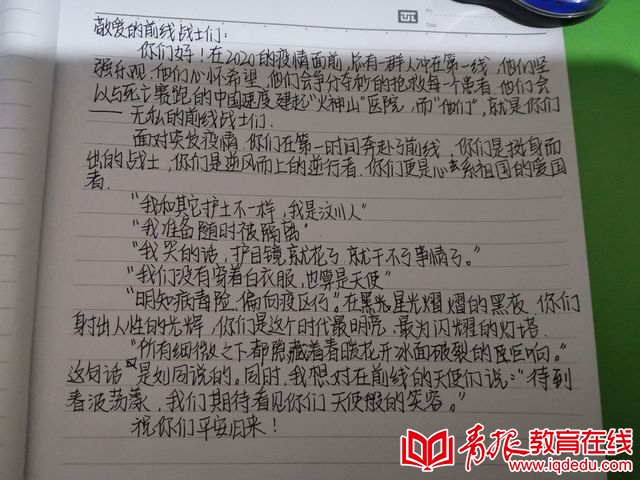 No.
Date
敬爱的前线战士们:
你们好!在2020的疫情面前,总有一群人冲在第一线,他们坚
强乐观.他们心怀希望,他们会争分夺秒的抢救每一个患者.他们会
以与死亡赛跑的中国速度建起"火神山"医院,而"他们",就是你们
——无私的前线战士们.
面对突发疫情,你们在第一时间奔赴了前线,你们是挺身而
出的战士,你们是逆风而上的逆行者.你们更是心系祖国的爱国
者.
"我和其它护士不一样,我是汶川人"
"我准备随时被隔离"
"我哭的话,护目镜就花了,就干不了事情了。"
"我们没有穿着白衣服,也算是天使"
"明知病毒险,偏向疫区行"。在黑光星光熠熠的黑夜,你们
射出人性的光辉,你们是这个时代最明亮、最为闪耀的灯塔.
"所有细微之下都隐藏着春暖花开冰面破裂的巨响。"
这句话是刘同说的。同时,我想对在前线的天使们说:"待到
春波荡漾,我们期待看见你们天使般的笑容。"
祝你们平安归来!
青报教育在线
www.iqdedu.com